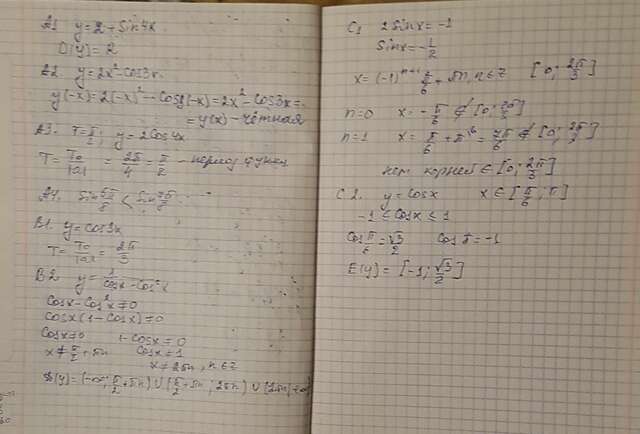 A1 y = 2 + Sin4x.
D(y) = 2
A2. y = 2x² - Cos3x.
y(-x) = 2(-x)² - Cos3(-x) = 2x² - Cos3x =
= y(x) - чётная
A3. T = π/2; y = 2Cos4x
T = T₀/|a| = 2π/4 = π/2 - период функц
A4. Sin 5π/8 < Sin
B1. y = cos3x
T = T₀/|a| = 2π/3
B2 y = 1/(Cosx - Cos²x)
Cosx - Cos²x ≠ 0
Cosx(1 - Cosx) ≠ 0
Cosx ≠ 0 1 - Cosx ≠ 0
x ≠ π/2 + πn Cosx ≠ 1
x ≠ 2πn, n ∈ z
D(y) = (-∞; π/2 + πn) ∪ (π/2 + πn; 2πn) ∪ (2πn; +∞)
C1 2Sinx = -1
Sinx = -1/2
x = (-1)ⁿ⁺¹ π/6 + πn, n ∈ z [0; 2π/3]
n=0 x = -π/6 ∉ [0; 2π/3]
n=1 x = π/6 + π = 7π/6 ∉ [0; 2π/3]
нет корней ∈ [0; 2π/3]
C2. y = Cosx x ∈ [π/6; π]
-1 ≤ Cosx ≤ 1
Cos π/6 = √3/2 Cos π = -1
E(y) = [-1; √3/2]